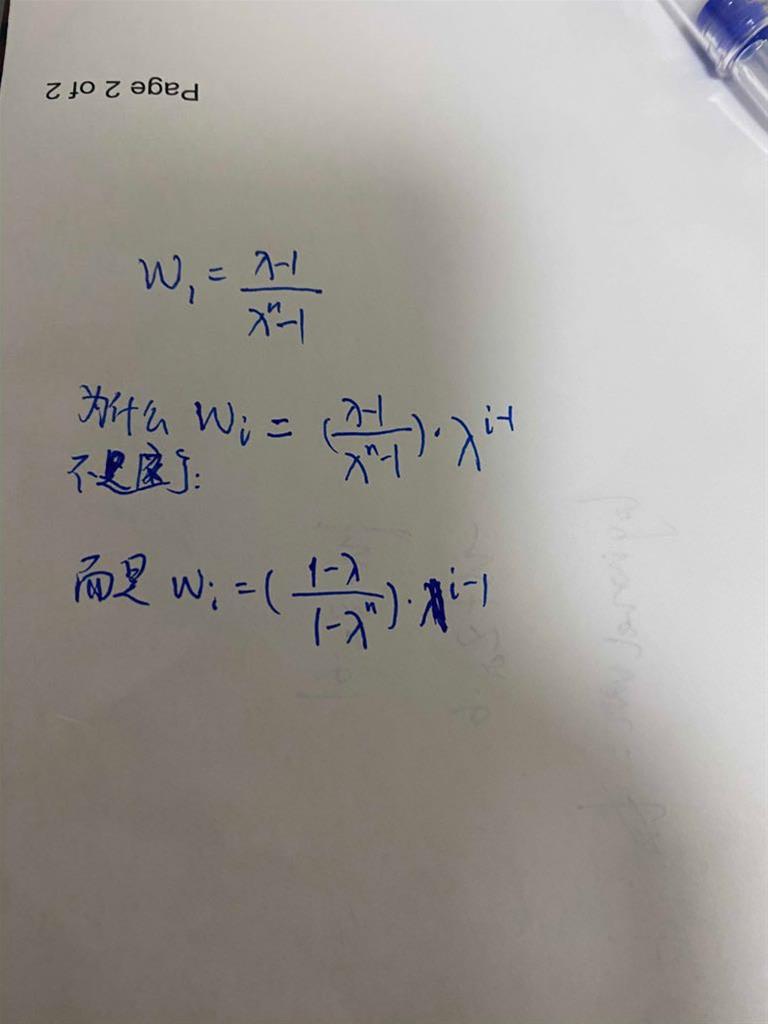 Page 2 of 2
W₁ = (λ-1)/(λⁿ-1)
为什么 Wᵢ = ((λ-1)/(λⁿ-1))·λ^(i-1)
不是应了:
而是 Wᵢ = ((1-λ)/(1-λⁿ))·λ^(i-1)